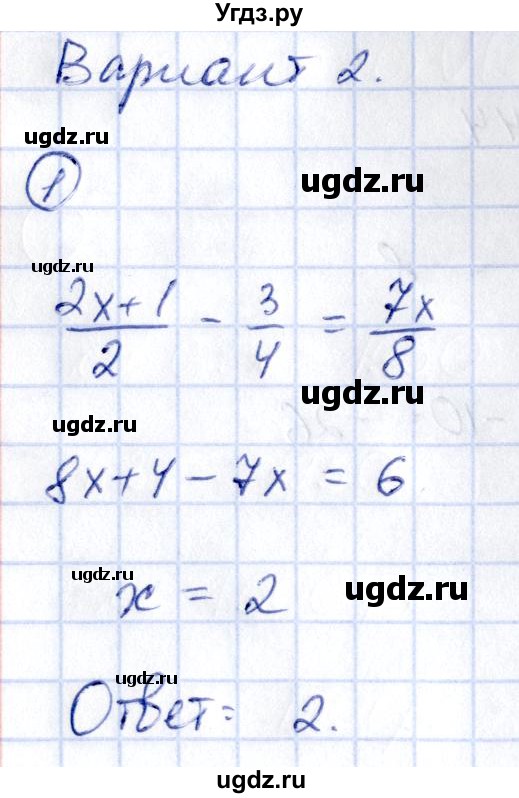 Угдз.ру
Вариант 2.
ugdz.ru
1
ugdz.ru
ugdz.ru
(2x+1)/2 - 3/4 = 7x/8
ugdz.ru
ugdz.ru
8x+4-7x = 6
ugdz.ru
ugdz.ru
x = 2
ugdz.ru
Ответ: 2.
ugdz.ru
ugdz.ru